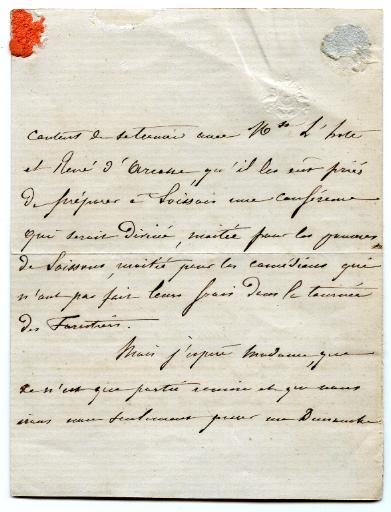 content de se trouver avec Mrs L'hote
et René d'Arcosse qu'il les eut priés
de préparer à Soissons une conférence
qui serait divisée, moitié pour les pauvres
de Soissons moitié pour les comédiens qui
n'ont pas fait leurs frais dans la tournée
des Forestiers.
Mais j'espère Madame, que
ce n'est que partie remise et que nous
irons non seulement pour un Dimanche